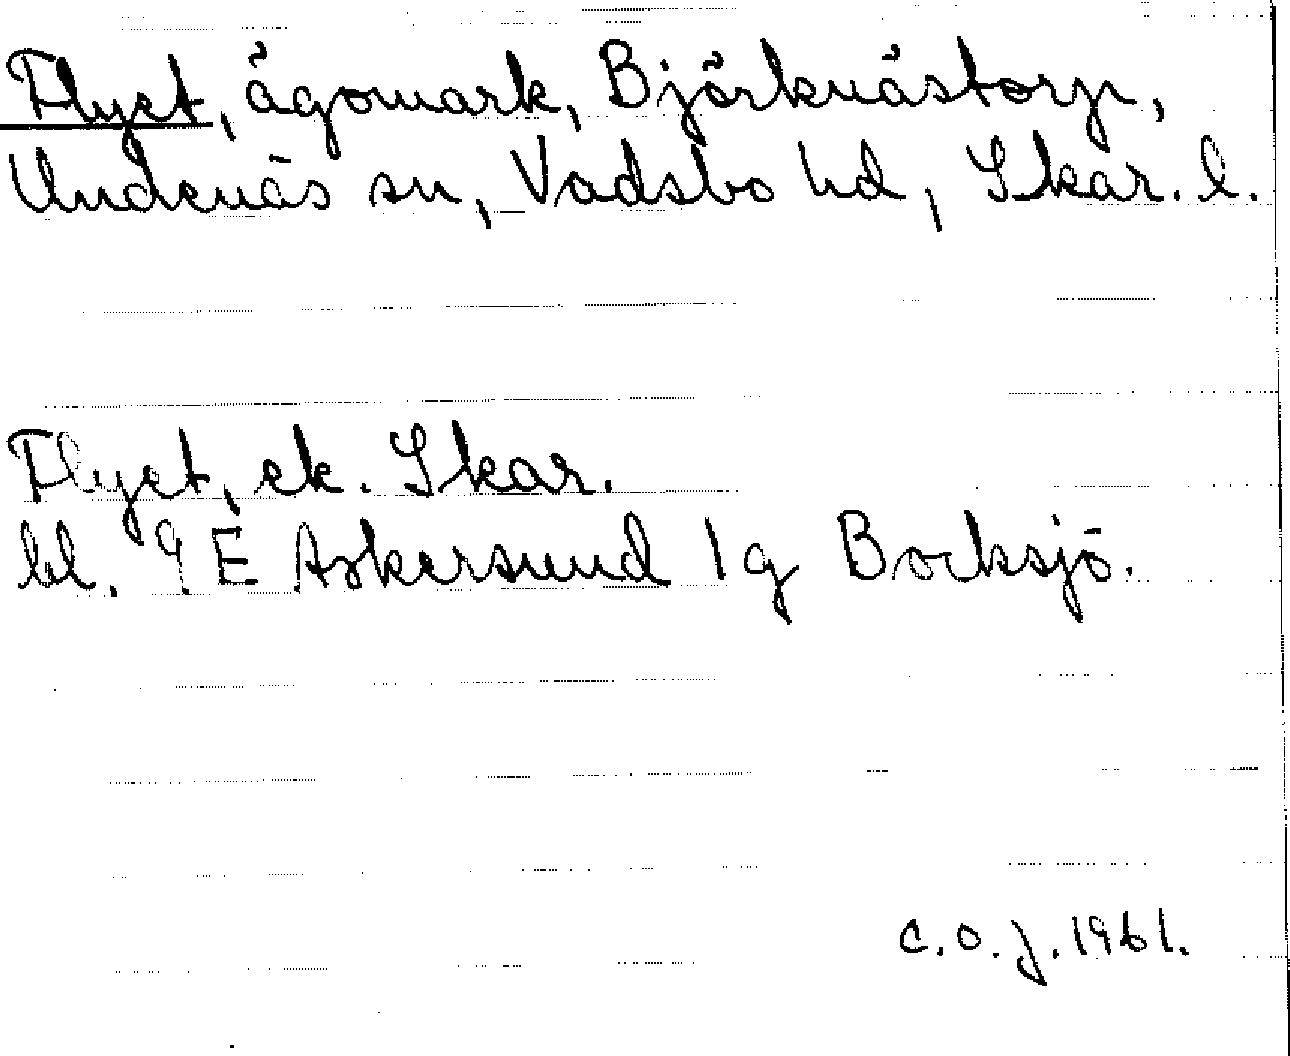 Flyet, ägomark, Björknästorp,
Undenäs sn, Vadsbo hd, Skar. l.
Flyet, ek. Skar.
bl. 9 E Askersund 1 g Bocksjö.
C.O.J. 1961.